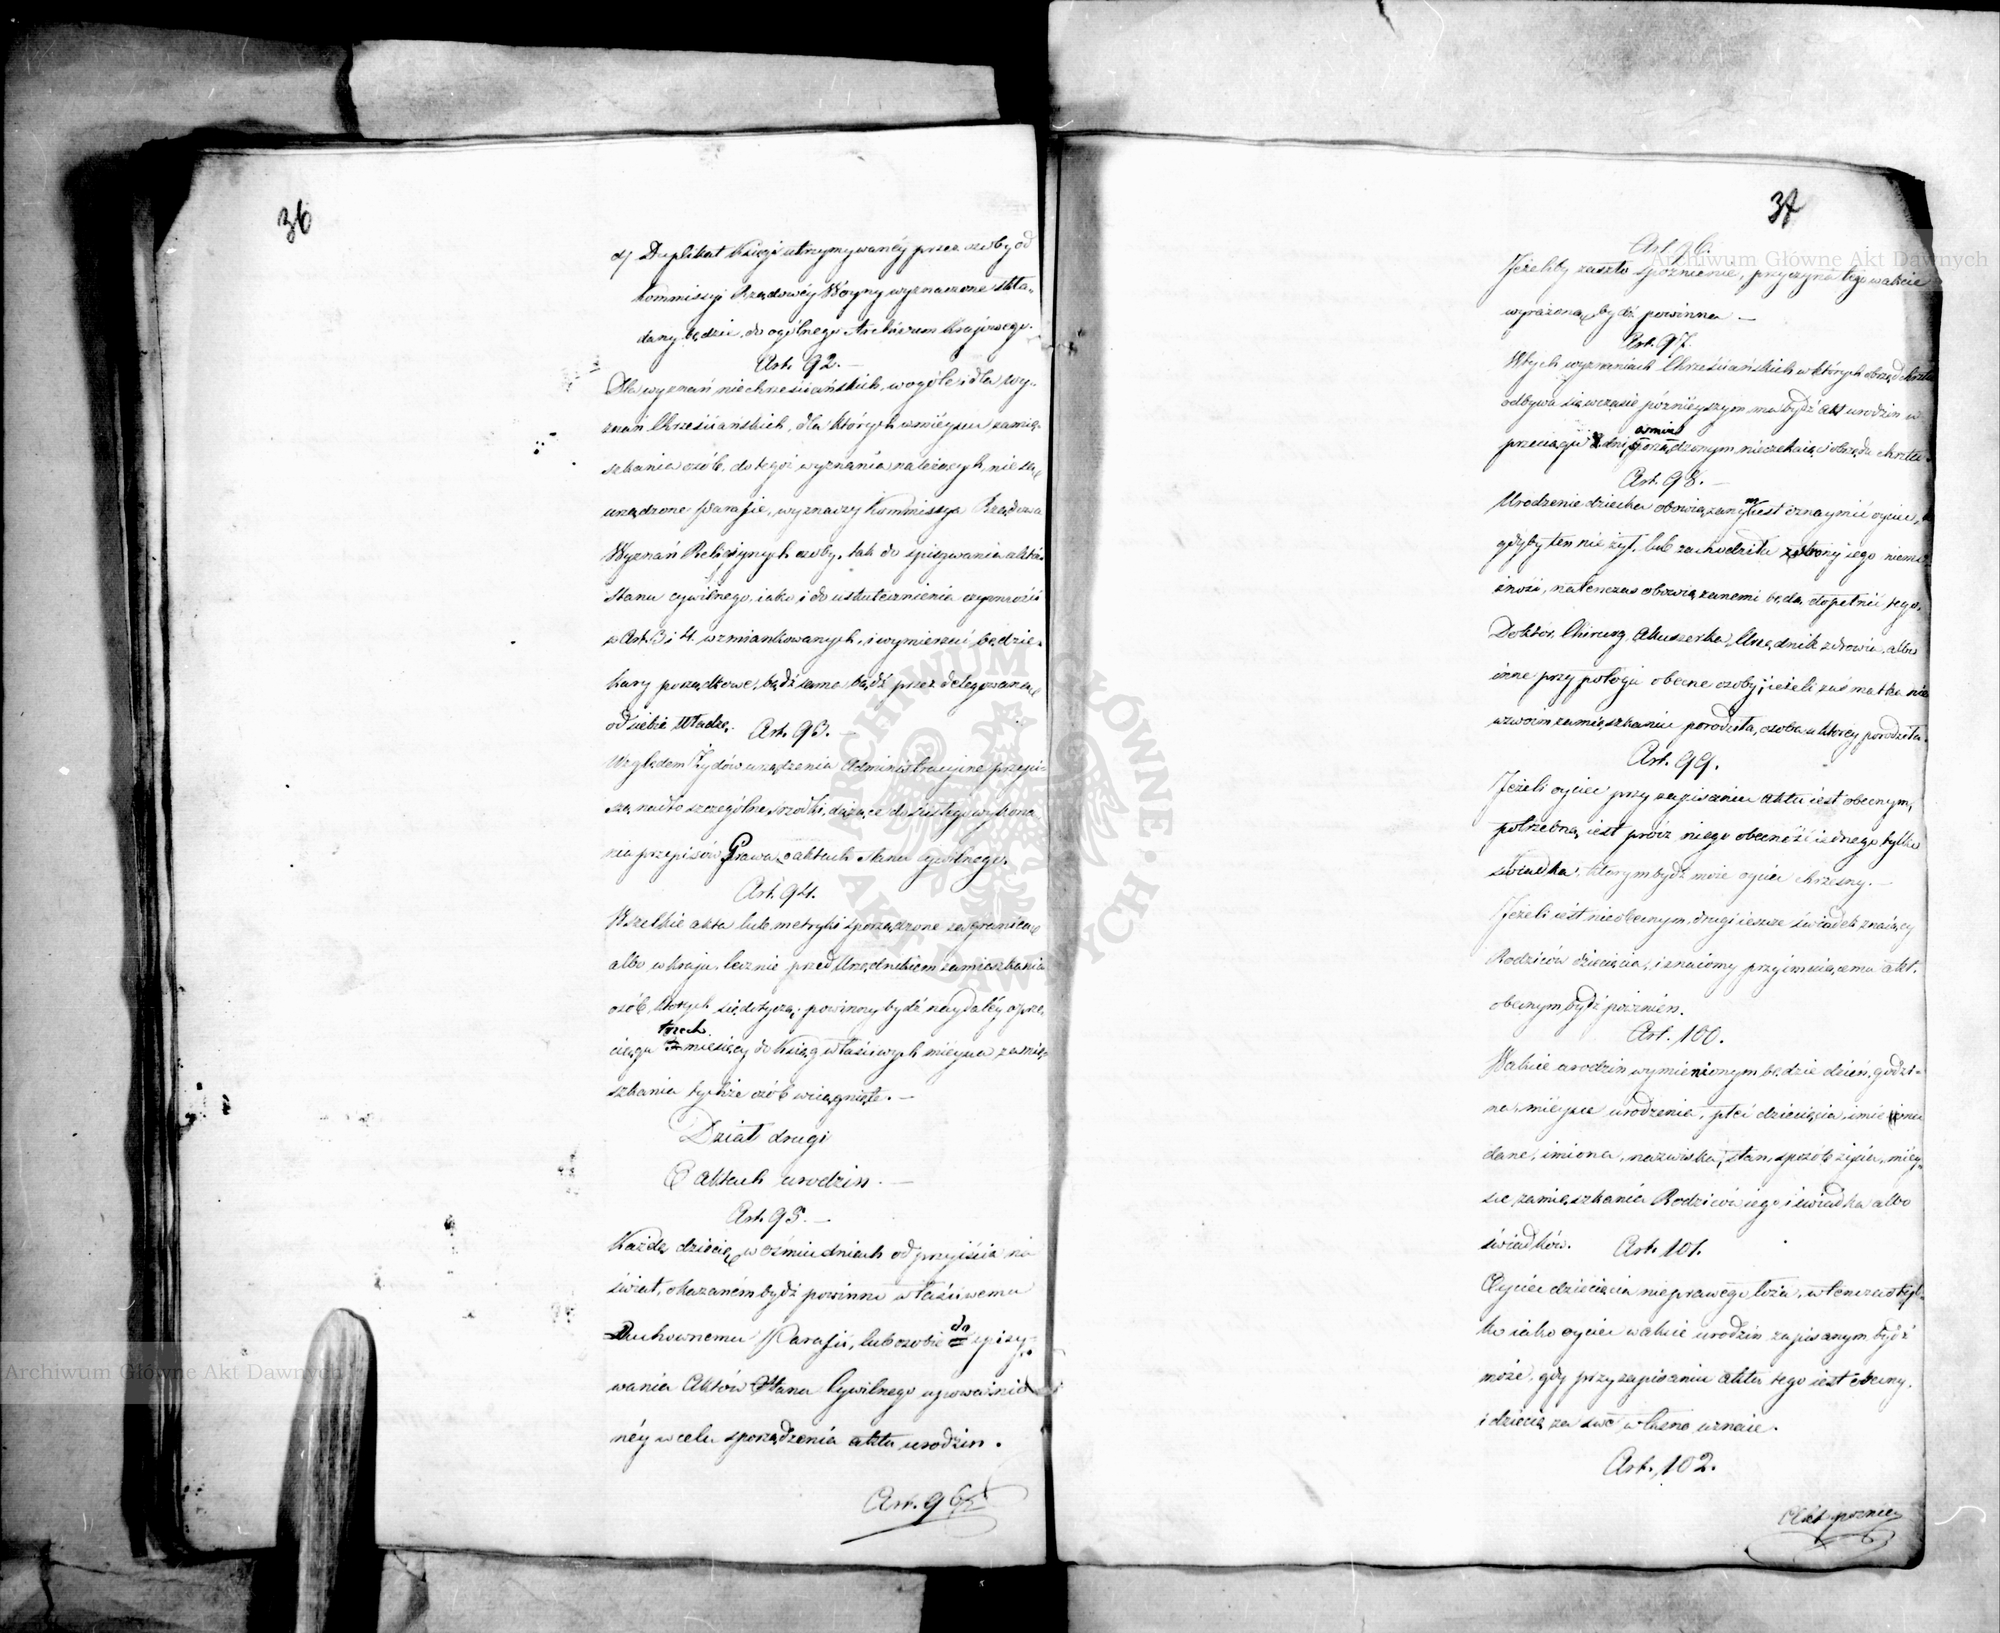 36
d) Duplikat Księgi utrzymywanéy przez osoby od
Kommissyi Rządowéy Woyny wyznaczone skła-
dany będzie do ogólnego Archiwum Krajowego.
Art. 92. —
Dla wyznań niechrześciańskich, w ogóle i dla wy-
znań Chrześciańskich, dla których w mieyscu zamie-
szkania osób, do tegoż wyznania należących, nie są
urządzone Parafie, wyznaczy Kommissya Rządowa
Wyznań Religiynych osoby, tak do spisywania aktów
Stanu cywilnego, iako i do uskutecznienia czynności
w Art. 3 i 4. wzmiankowanych, i wymierzać będzie
kary porządkowe, bądź sama bądź przez delegowaną
od siebie Władzę. Art. 93. —
Względem Żydów urządzenia Administracyjne przepi-
szą, nadto szczególne środki, dążące do ścisłego wykona-
nia przepisów Prawa o aktach Stanu cywilnego.
Art. 94.
Wszelkie akta lub metryki sporządzone za granicą
albo w kraju, lecz nie przed Urzędnikiem zamieszkania
osób, których się dotyczą, powinny bydź naydaléy w prze-
trzech
ciągu miesięcy do Ksiąg właściwych mieysca zamie-
szkania tychże osób wciągnięte. —
Dział drugi
O aktach urodzin. —
Art. 95. —
Każde dziecię w ośmiu dniach od przyiścia na
świat, okazaném bydź powinno właściwemu
Duchownemu Parafii, lub osobie do spisy-
wania Aktów Stanu Cywilnego upoważnio-
néy w celu sporządzenia aktu urodzin.
Art. 96.
37
Art. 96.
Jeżeliby zaszło spóźnienie, przyczyna tego w akcie
wyrażoną bydź powinna —
Art. 97.
W tych wyznaniach Chrześciańskich w których obrzęd chrztu
odbywa się w czasie późnieyszym ma bydź akt urodzin w
ośmiu
przeciągu dni sporządzonym nieczekając obrzędu chrztu.
Art. 98. —
Urodzenie dziecka obowiązanym iest oznaymić oyciec, a
gdyby ten nie żył, lub zachodziła z strony iego niemo-
żność, natenczas obowiązanemi będą dopełnić tego,
Doktór, Chirurg, Akuszerka, Urzędnik zdrowia, albo
inne przy połogu obecne osoby; ieżeli zaś matka nie
w swoim zamieszkaniu porodziła, osoba u któréy porodziła.
Art. 99.
Jeżeli oyciec przy zapisaniu aktu iest obecnym,
potrzebna iest prócz niego obecność iednego tylko
świadka, którym bydź może oyciec chrzesny. —
Jeżeli iest nieobecnym, drugi ieszcze świadek znaiący
Rodziców dziecięcia, i znaiomy przyimuiącemu akt,
obecnym bydź powinien.
Art. 100.
W akcie urodzin wymienionym będzie dzień, godzi-
na, mieysce urodzenia, płeć dziecięcia, imie mu
dane, imiona, nazwiska, stan, sposób życia, miey-
sce zamieszkania Rodziców iego i świadka albo
świadków. Art. 101.
Oyciec dziecięcia nieprawego łoża, wtenczas tyl-
ko iako oyciec w akcie urodzin zapisanym bydź
może, gdy przy zapisaniu aktu tego iest obecny,
i dziecię za swe własne uznaie.
Art. 102.
Akt
Archiwum Główne Akt Dawnych
Archiwum Główne Akt Dawnych
ARCHIWUM GŁÓWNE AKT DAWNYCH